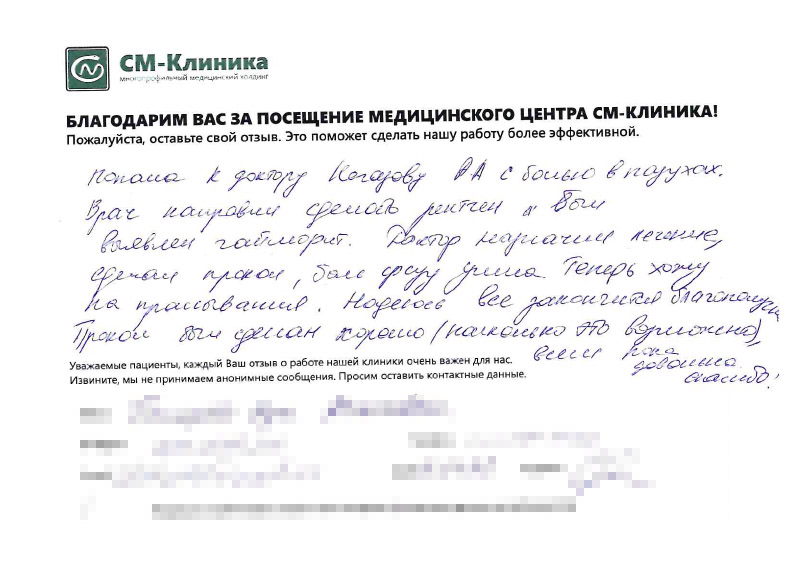 СМ-Клиника
многопрофильный медицинский холдинг
БЛАГОДАРИМ ВАС ЗА ПОСЕЩЕНИЕ МЕДИЦИНСКОГО ЦЕНТРА СМ-КЛИНИКА!
Пожалуйста, оставьте свой отзыв. Это поможет сделать нашу работу более эффективной.
Попала к доктору с болью в пазухах.
Врач направил сделать рентген и был
выявлен гайморит. Доктор назначил лечение,
сделал прокол, боль сразу ушла. Теперь хожу
на промывания. Надеюсь все закончится благополучно
Прокол был сделан хорошо (насколько это возможно),
всем пока
довольна
спасибо!
Уважаемые пациенты, каждый Ваш отзыв о работе нашей клиники очень важен для нас.
Извините, мы не принимаем анонимные сообщения. Просим оставить контактные данные.